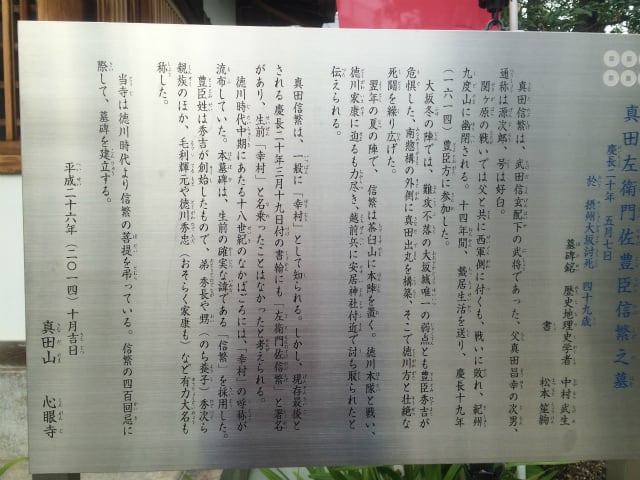 真田左衛門佐豊臣信繁之墓
慶長二十年 五月七日
於 摂州大坂討死 四十九歳
墓碑銘 歴史地理史学者 中村武生
書 松本笙駒
真田信繁は、武田信玄配下の武将であった、父真田昌幸の次男、
通称は源次郎、号は好白。
関ヶ原の戦いでは父と共に西軍側に付くも、戦いに敗れ、紀州
九度山に幽閉される。十四年間、蟄居生活を送り、慶長十九年
(一六一四)豊臣方に参加した。
大坂冬の陣では、難攻不落の大坂城唯一の弱点とも豊臣秀吉が
危惧した、南惣構の外側に真田出丸を構築、そこで徳川方と壮絶な
死闘を繰り広げた。
翌年の夏の陣で、信繁は茶臼山に本陣を置く。徳川本隊と戦い、
徳川家康に迫るも力尽き、越前兵に安居神社付近で討ち取られたと
伝えられる。
真田信繁は、一般に「幸村」として知られる。しかし、現存最後と
される慶長二十年三月十九日付の書翰にも「左衛門佐信繁」と署名
があり、生前「幸村」と名乗ったことはなかったと考えられる。
徳川時代中期にあたる十八世紀のなかばごろには、「幸村」の呼称が
流布していた。本墓碑は、生前の確実な諱である「信繁」を採用した。
豊臣姓は秀吉が創始したもので、弟 秀長や甥(のち養子)秀次ら
親族のほか、毛利輝元や徳川秀忠(おそらく家康も)など有力大名も
称した。
当寺は徳川時代より信繁の菩提を弔っている。信繁の四百回忌に
際して、墓碑を建立する。
平成二十六年(二〇一四)十月吉日
真田山 心眼寺